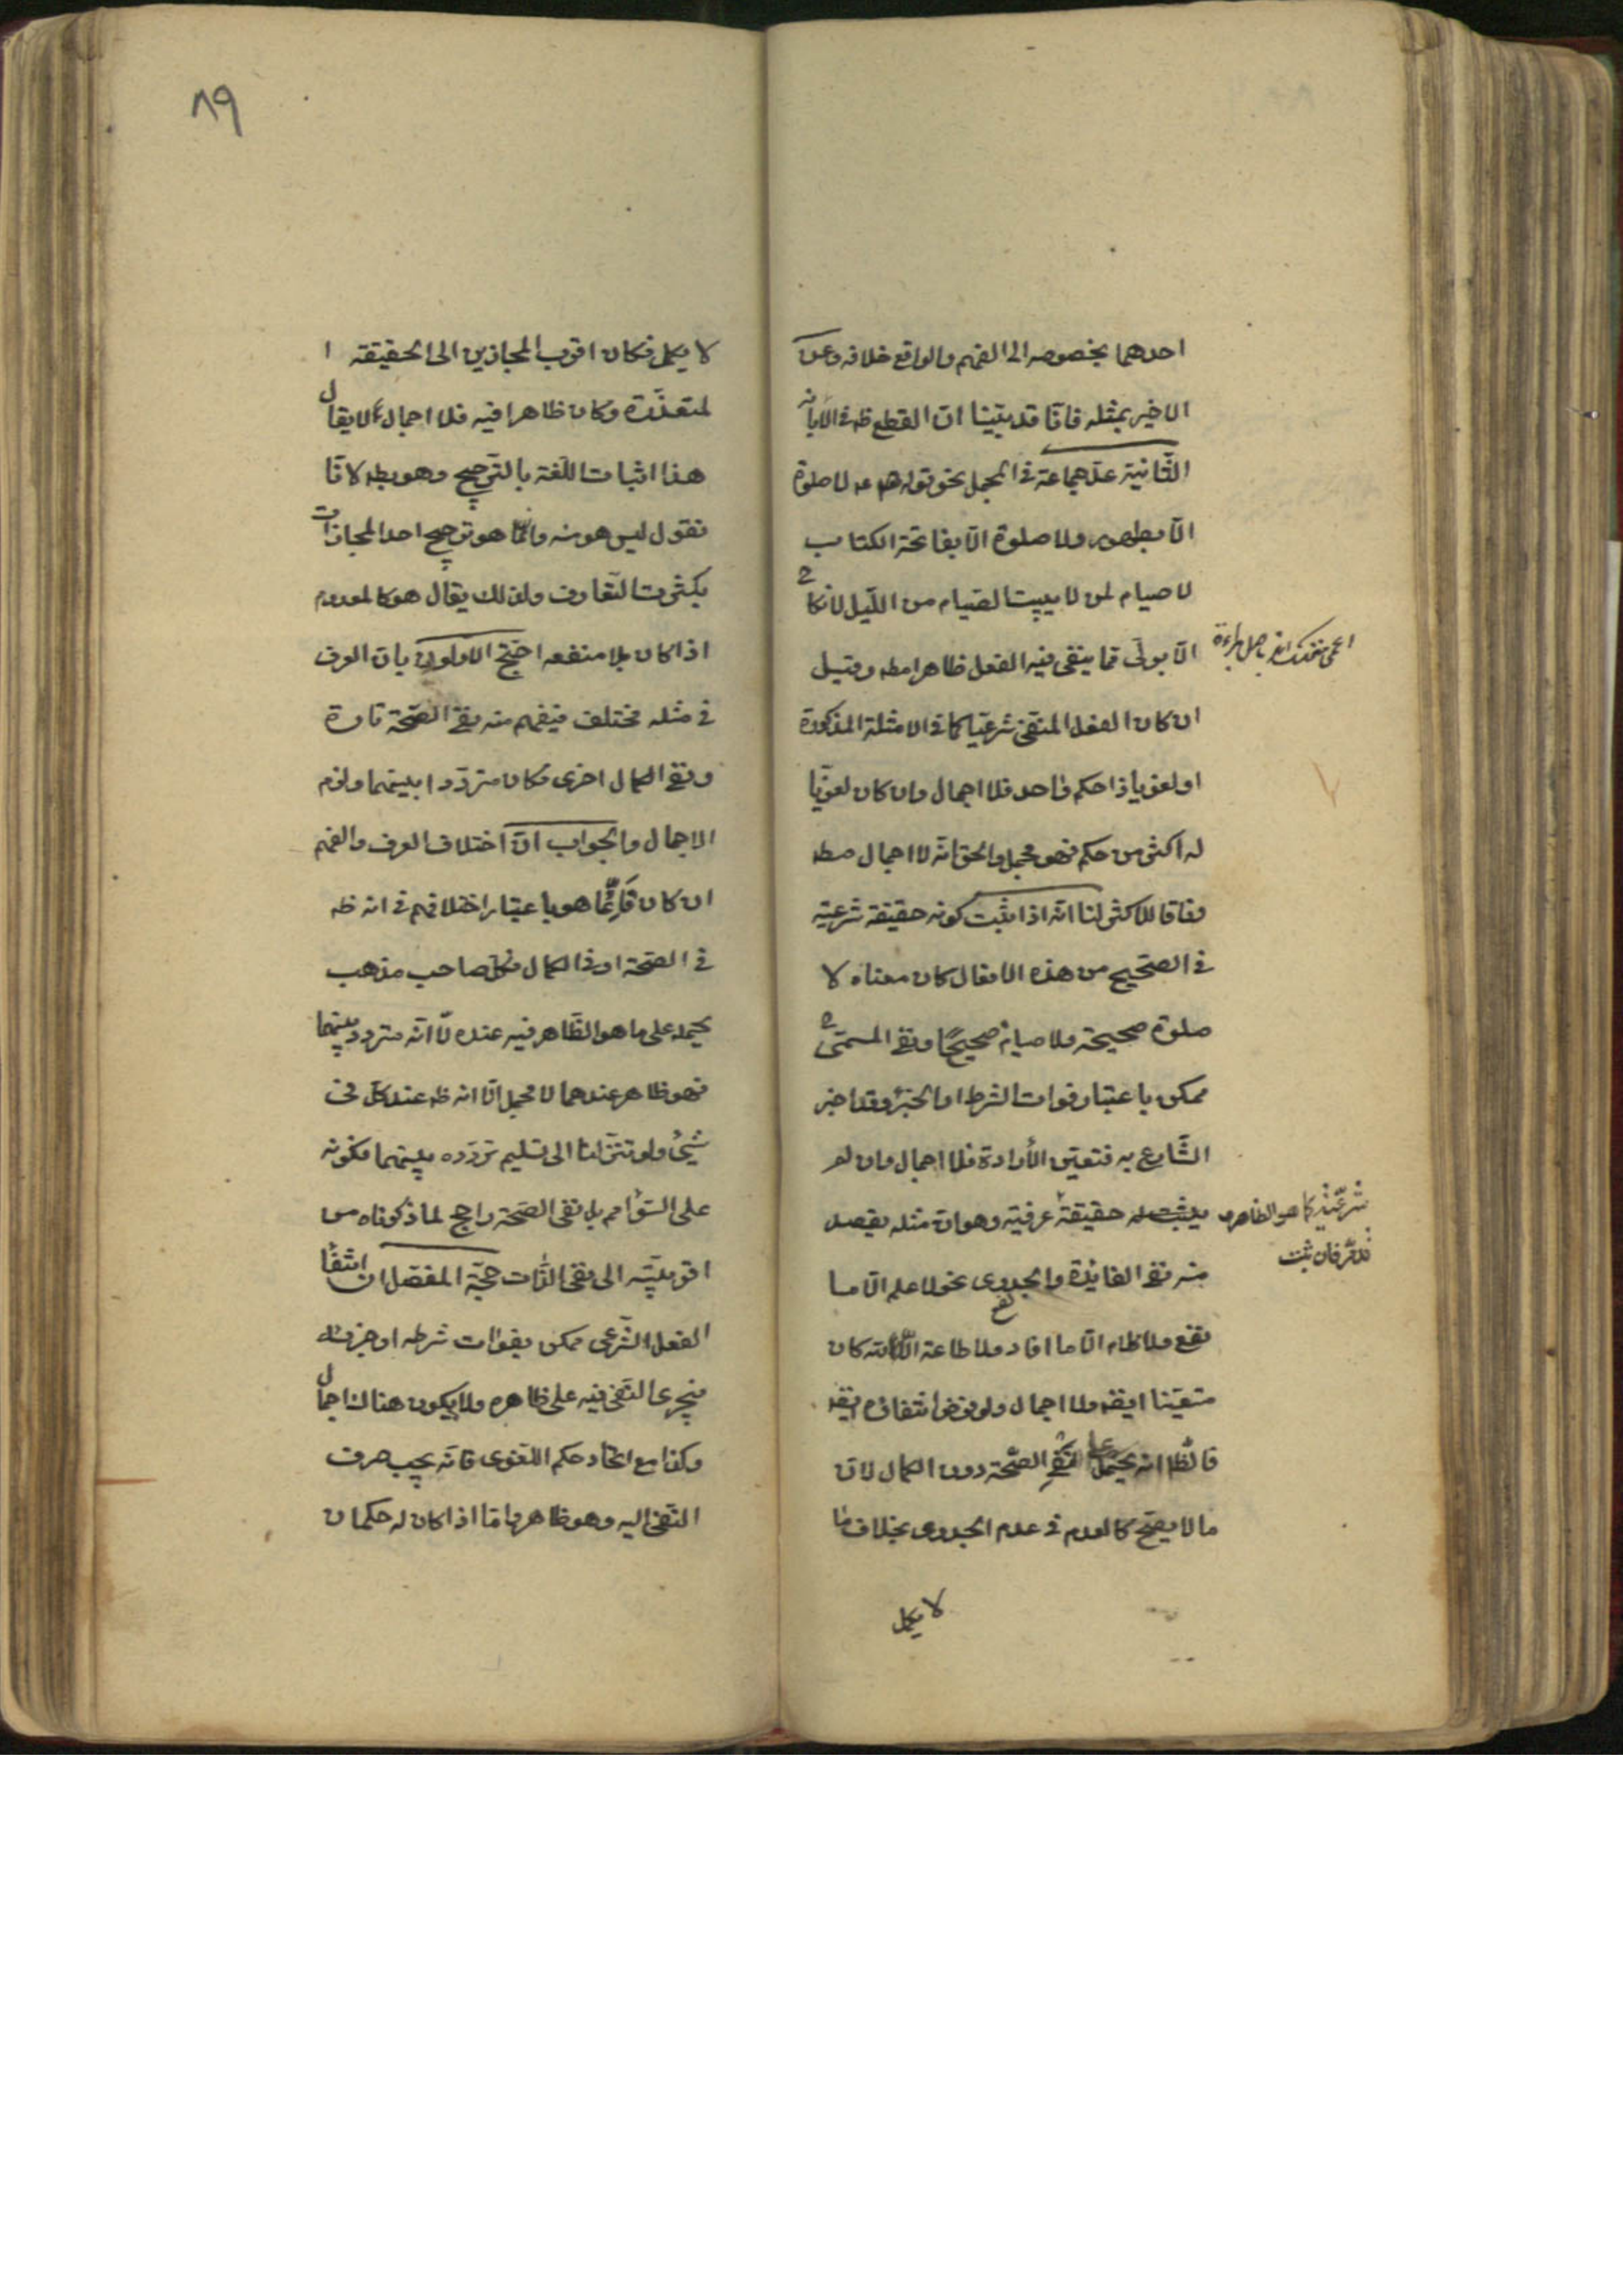 احدهما بخصوصه الى الفهم والواقع خلافه وعن
الاخير بمثله فانا قد بيّنا ان القطع ظ فى الابانه
الثّانية عدّ جماعة فى المجمل نحو قوله لا صلوة
الّا بطهور ولا صلوة الّا بفاتحة الكتاب
لا صيام لمن لا يبيت الصيام من اللّيل لا نكاح
الّا بولىّ ممّا ينفى فيه الفعل ظاهرا مطه وقيل
ان كان الفعل المنفى شرعيّا كما فى الامثلة المذكورة
او لغويا ذا حكم واحد فلا اجمال وان كان لغويّا
له اكثر من حكم فهو مجمل والحق انّه لا اجمال مطه
وفاقا للاكثر لنا انّه اذا ثبت كونه حقيقة شرعيّه
فى الصّحيح من هذه الافعال كان معناه لا
صلوة صحيحة ولا صيام صحيحًا ونفى المسمّى ح
ممكن باعتبار فوات الشرط او الجزء وقد اخبر
الشّارع به فتعيّن الأرادة فلا اجمال وان لم
يثبت له حقيقة عرفيّه وهو ان مثله يقصد
شرعيّة كما هو الظاهر
فان ثبت
منه نفى الفائدة والجدوى نحو لا علم الّا ما
نفع ولا كلام الّا ما افاد ولا طاعة الّا لله كان
متعيّنا ايضه ولا اجمال ولو فرض انتفاؤه ايضه
فالظا انه يحمل على نفى الصّحة دون الكمال لان
ما لا يصحّ كالعدم فى عدم الجدوى بخلاف ما
لا يكمل
٨٩
لا يكمل فكان اقرب المجازين الى الحقيقه ا
لمتعذّرة وكان ظاهرا فيه فلا اجمال لا يقال
هذا اثبات اللّغة بالتّرجيح وهو بطه لانّا
نقول ليس هو منه وانّما هو ترجيح احد المجازات
بكثرت التّعارف ولذلك يقال هو كالمعدوم
اذا كان بلا منفعه احتجّ الاولون بان العرف
فى مثله مختلف فيفهم منه نفى الصّحّة تارة
ونفى الكمال اخرى فكان متردّدا بينهما ولزم
الاجمال والجواب انّ اختلاف العرف والفهم
ان كان فانّما هو باعتبار اختلافهم فى انه ظه
فى الصّحة او فى الكمال فكلّ صاحب مذهب
يحمله على ما هو الظّاهر فيه عنده لا انّه متردد بينهما
فهو ظاهر عندهما لا مجمل الّا انه ظه عند كلّ فى
شئ ولو تنزّلنا الى تسليم تردّده بينهما فكونه
على السّواء مم بل نفى الصّحة راجح لما ذكرناه من
اقربيّته الى نفى الذّات حجّة المفصّل ان انتفاء
الفعل الشّرعى ممكن بفوات شرطه او جزئه
فيجرى النّفى فيه على ظاهره ولا يكون هناك اجمال
وكذا مع اتّحاد حكم اللّغوى فانّه يجب صرف
النّفى اليه وهو ظاهر وامّا اذا كان له حكمان